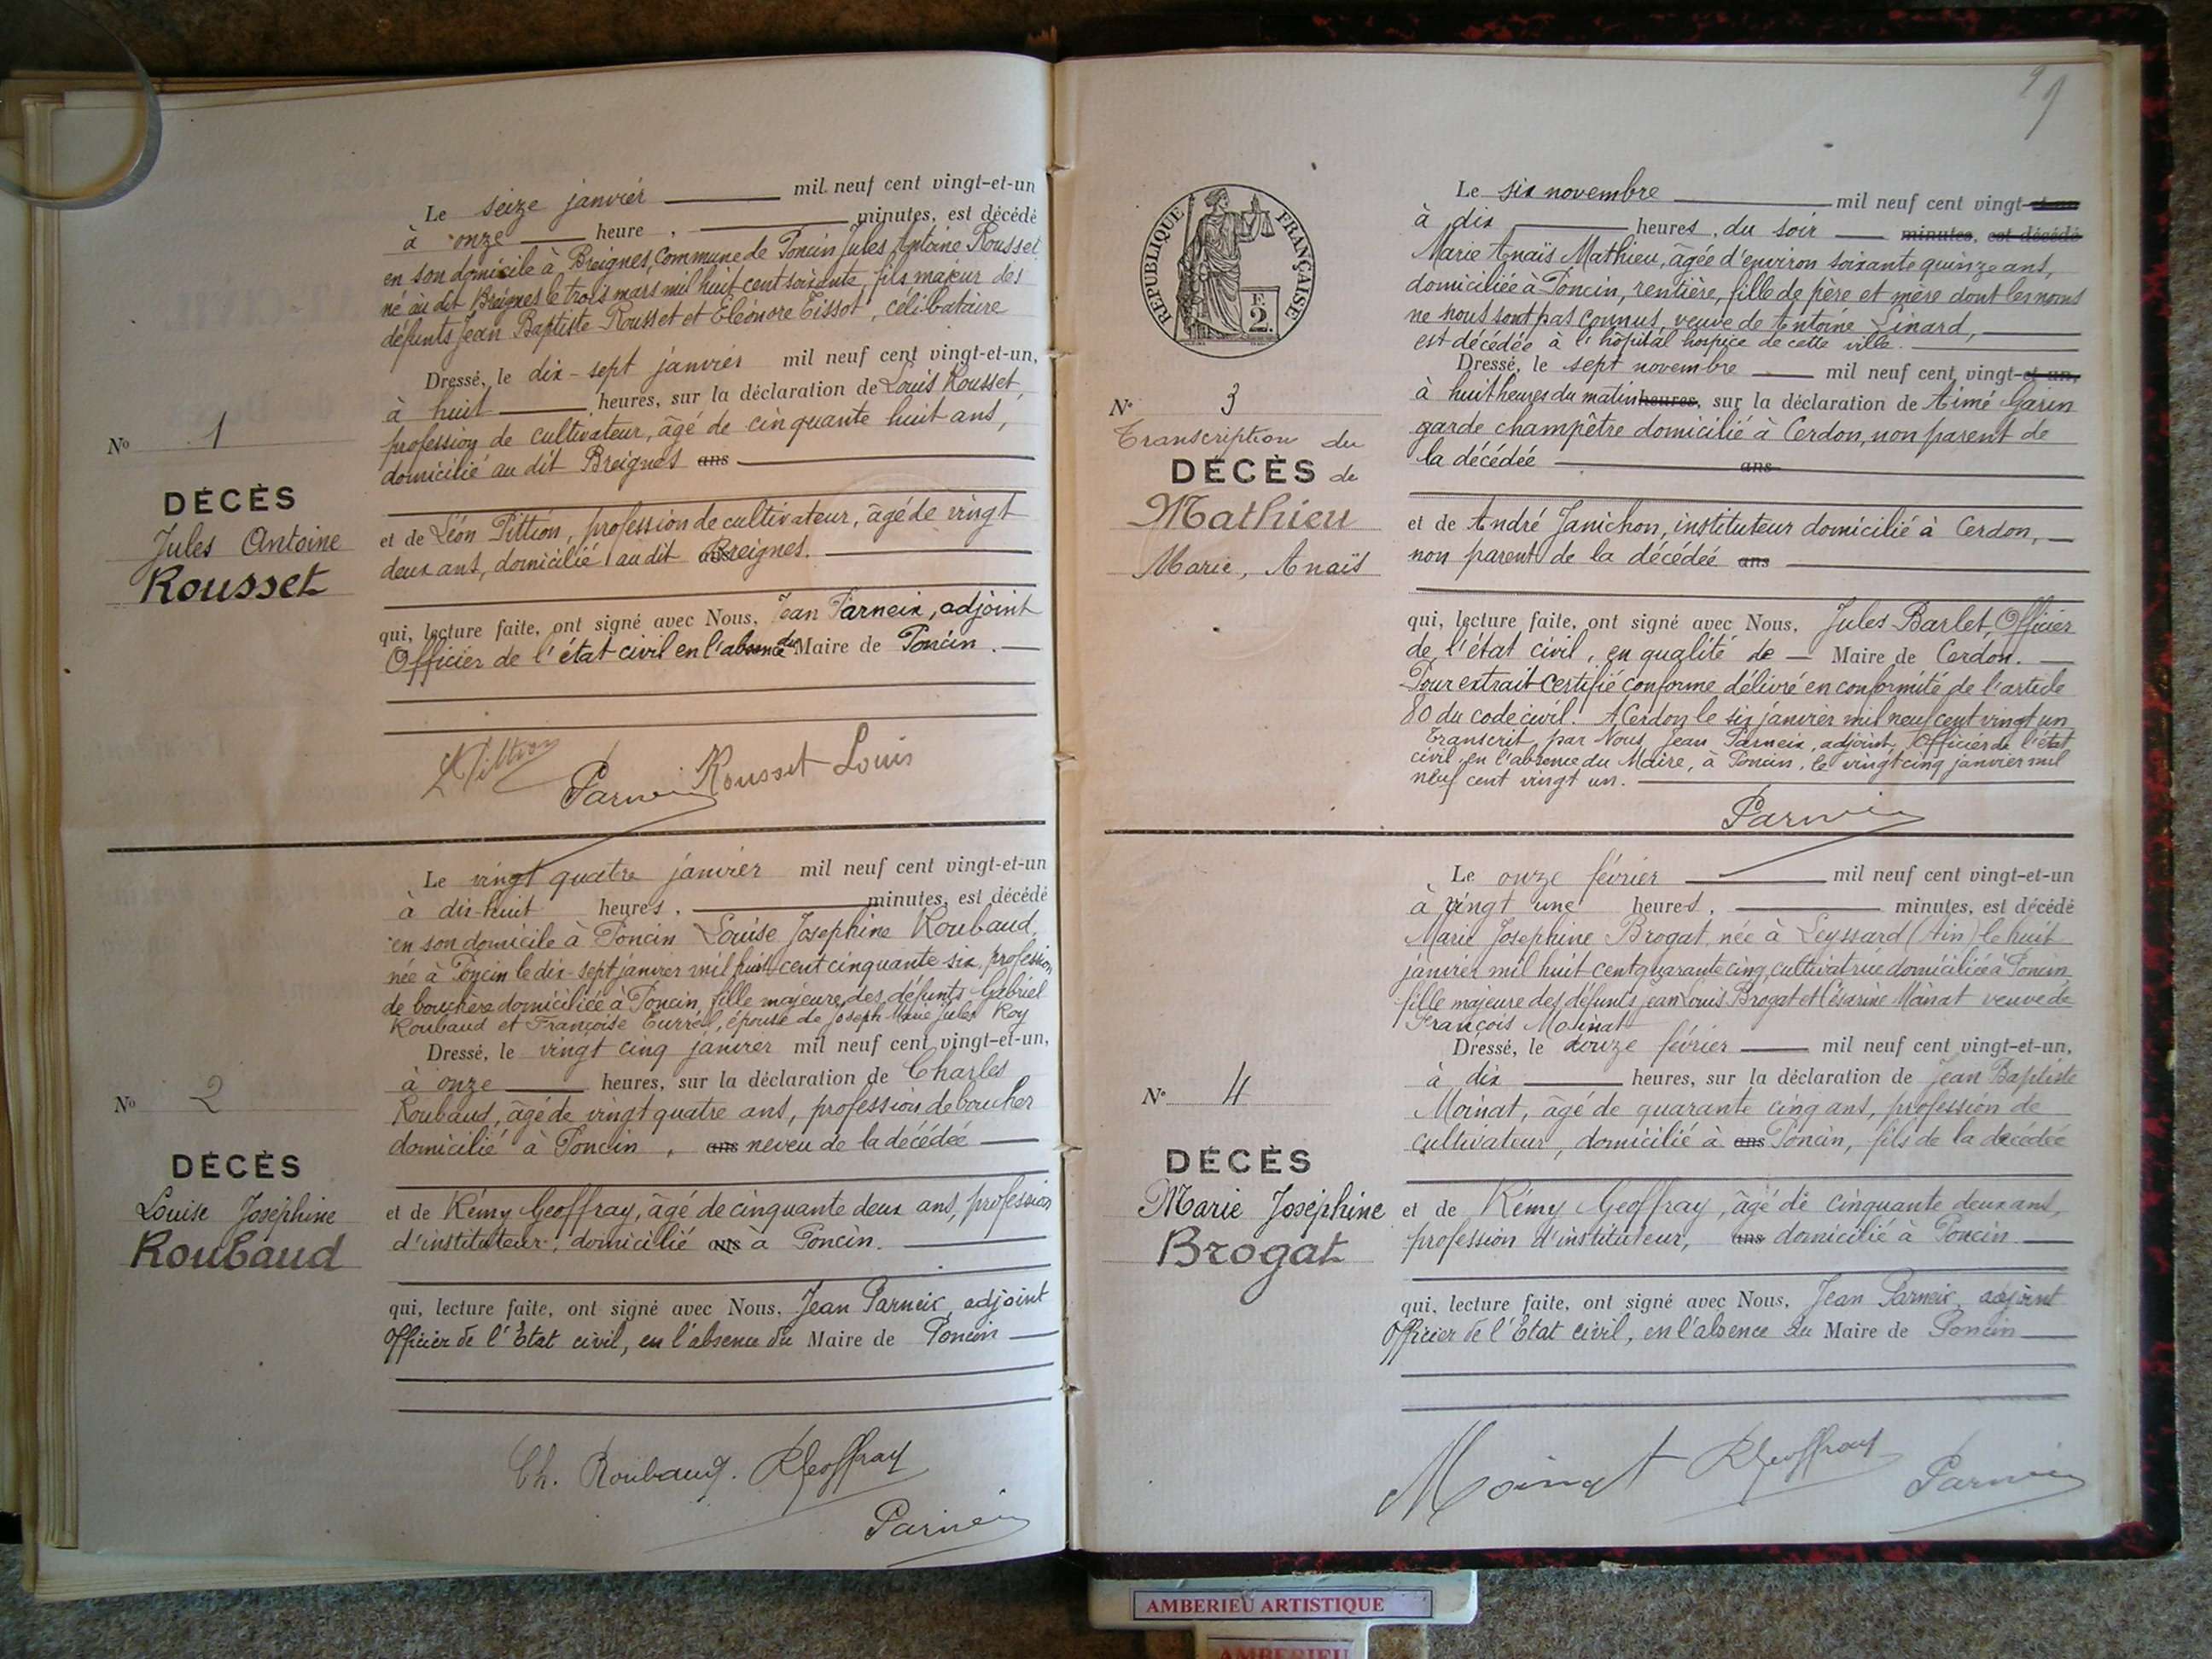 Le seize janvier mil neuf cent vingt-et-un
à onze heure , minutes, est décédé
en son domicile à Breignes, Commune de Poncin Jules Antoine Rousset
né au dit Breignes le trois mars mil huit cent soixante, fils majeur des
défunts Jean Baptiste Rousset et Eléonore Tissot, célibataire
Dressé, le dix-sept janvier mil neuf cent vingt-et-un,
à huit heures, sur la déclaration de Louis Rousset
profession de cultivateur, âgé de cinquante huit ans,
domicilié au dit Breignes ans
No 1
DÉCÈS
Jules Antoine
Rousset
et de Léon Pittion, profession de cultivateur, âgé de vingt
deux ans, domicilié au dit ans Breignes.
qui, lecture faite, ont signé avec Nous, Jean Parneix, adjoint
Officier de l'état civil en l'absence du Maire de Poncin.
L Pittion
Parneix
Rousset Louis
Le vingt quatre janvier mil neuf cent vingt-et-un
à dix-huit heures, minutes, est décédé
en son domicile à Poncin Louise Josephine Roubaud,
née à Poncin le dix-sept janvier mil huit cent cinquante-six, profession
de bouchère domiciliée à Poncin, fille majeure des défunts Gabriel
Roubaud et Françoise Turrel, épouse de Joseph Marie Jules Roy
Dressé, le vingt cinq janvier mil neuf cent vingt-et-un,
à onze heures, sur la déclaration de Charles
Roubaud, âgé de vingt quatre ans, profession de boucher
domicilié à Poncin, ans neveu de la décédée
No 2
DÉCÈS
Louise Joséphine
Roubaud
et de Rémy Geoffray, âgé de cinquante deux ans, profession
d'instituteur, domicilié ans à Poncin.
qui, lecture faite, ont signé avec Nous, Jean Parneix, adjoint
Officier de l'Etat civil, en l'absence du Maire de Poncin
Ch. Roubaud. RGeoffray
Parneix
RÉPUBLIQUE FRANÇAISE
F.
2.
Le six novembre mil neuf cent vingt-et-un
à dix heures, du soir minutes, est décédé
Marie Anaïs Mathieu, âgée d'environ soixante quinze ans,
domiciliée à Poncin, rentière, fille de père et mère dont les noms
ne nous sont pas connus, veuve de Antoine Linard,
est décédée à l'hôpital hospice de cette ville.
Dressé, le sept novembre mil neuf cent vingt-et-un,
à huit heures du matin heures, sur la déclaration de Aimé Garin
garde champêtre domicilié à Cerdon, non parent de
la décédée ans
No 3
Transcription du
DÉCÈS de
Mathieu
Marie, Anaïs
et de André Janichon, instituteur domicilié à Cerdon,
non parent de la décédée ans
qui, lecture faite, ont signé avec Nous, Jules Barlet, Officier
de l'état civil, en qualité de Maire de Cerdon.
Pour extrait certifié conforme délivré en conformité de l'article
80 du code civil. A Cerdon le six janvier mil neuf cent vingt un
Transcrit par Nous, Jean Parneix, adjoint, Officier de l'état
civil, en l'absence du Maire, à Poncin, le vingt cinq janvier mil
neuf cent vingt un.
Parneix
Le onze février mil neuf cent vingt-et-un
à vingt une heures, minutes, est décédé
Marie Josephine Brogat, née à Leyssard (Ain) le huit
janvier mil huit cent quarante cinq, cultivatrice domiciliée à Poncin
fille majeure des défunts Jean Louis Brogat et Césarine Moinat veuve de
François Moinat
Dressé, le douze février mil neuf cent vingt-et-un,
à dix heures, sur la déclaration de Jean Baptiste
Moinat, âgé de quarante cinq ans, profession de
cultivateur, domicilié à ans Poncin, fils de la décédée
No 4
DÉCÈS
Marie Joséphine
Brogat
et de Rémy Geoffray, âgé de cinquante deux ans,
profession d'instituteur, ans domicilié à Poncin
qui, lecture faite, ont signé avec Nous, Jean Parneix, adjoint
Officier de l'Etat civil, en l'absence du Maire de Poncin
Moinat RGeoffray Parneix
AMBERIEU ARTISTIQUE
AMBERIEU